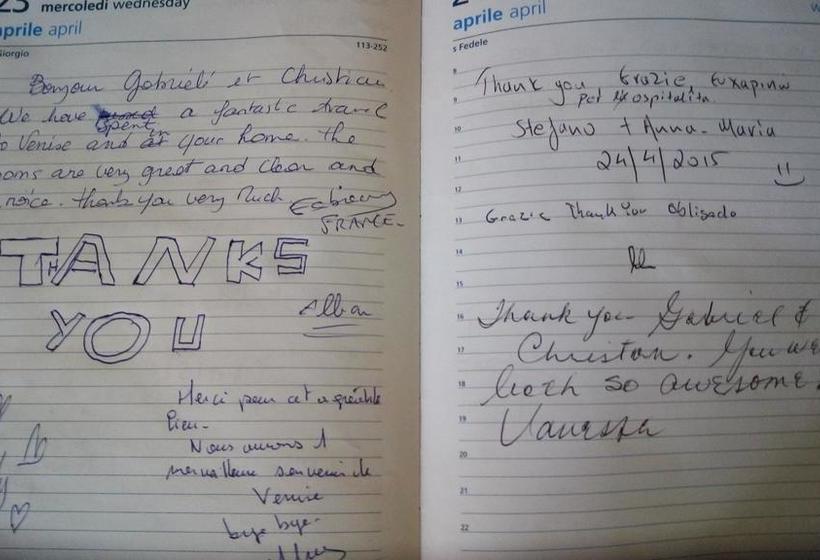 23 mercoledì wednesday
aprile april
Giorgio
113-252
Bonjour Gabriéli et Christian
We have spent a fantastic travel
to Venise and in your home. the
ooms are very great and clean and
nice. thank you very Much
FRANCE
THANKS
YOU
Alban
Merci pour cet agréable
lieu.
Nous aurons 1
merveilleux souvenir de
Venise
bye bye.
2
w
aprile april
s Fedele
8
Thank you Grazie,
9
per ospitalita
10
Stefano + Anna-Maria
11
24/4/2015
12
13
Grazie Thank You Obligado
14
15
16
Thank you Gabriel &
17
Christan. You we
18
both so awesome.
19
Vanessa
20
21
22